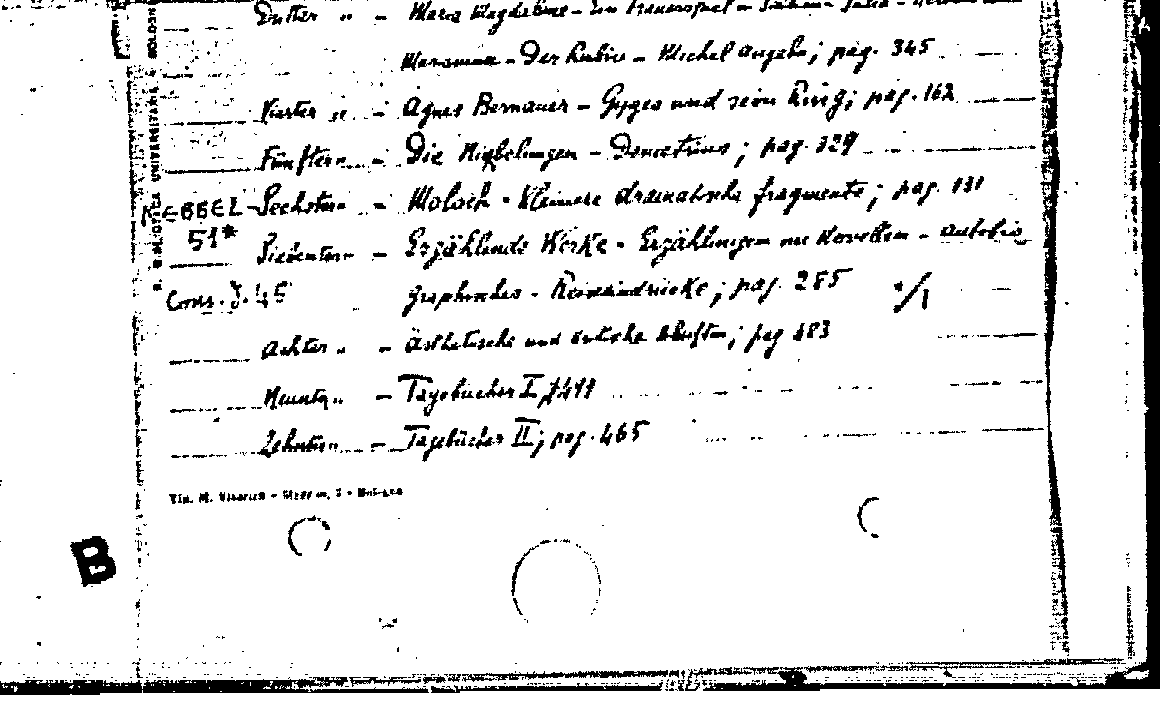 Dritter „ - Maria Magdalene - Ein Trauerspiel in Sizilien - Julia -
- Der Rubin - Michel Angelo; pag. 345
Vierter „ - Agnes Bernauer - Gyges und sein Ring; pag. 162
Fünfter „ - Die Nibelungen - Demetrius; pag. 329
HEBBEL Sechster „ - Moloch - Kleinere dramatische fragmente; pag. 131
51* Siebenter „ - Erzählende Werke - Erzählungen Novellen - autobio
Cons. J. 45 graphisches - Reiseeindrücke; pag. 285 */1
Achter „ - Ästhetische und kritische; pag 483
Neunter „ - Tagebücher I
Zehnter „ - Tagebücher II; pag. 465
Tip. M.
B
BIBLIOTECA UNIVERSITARIA